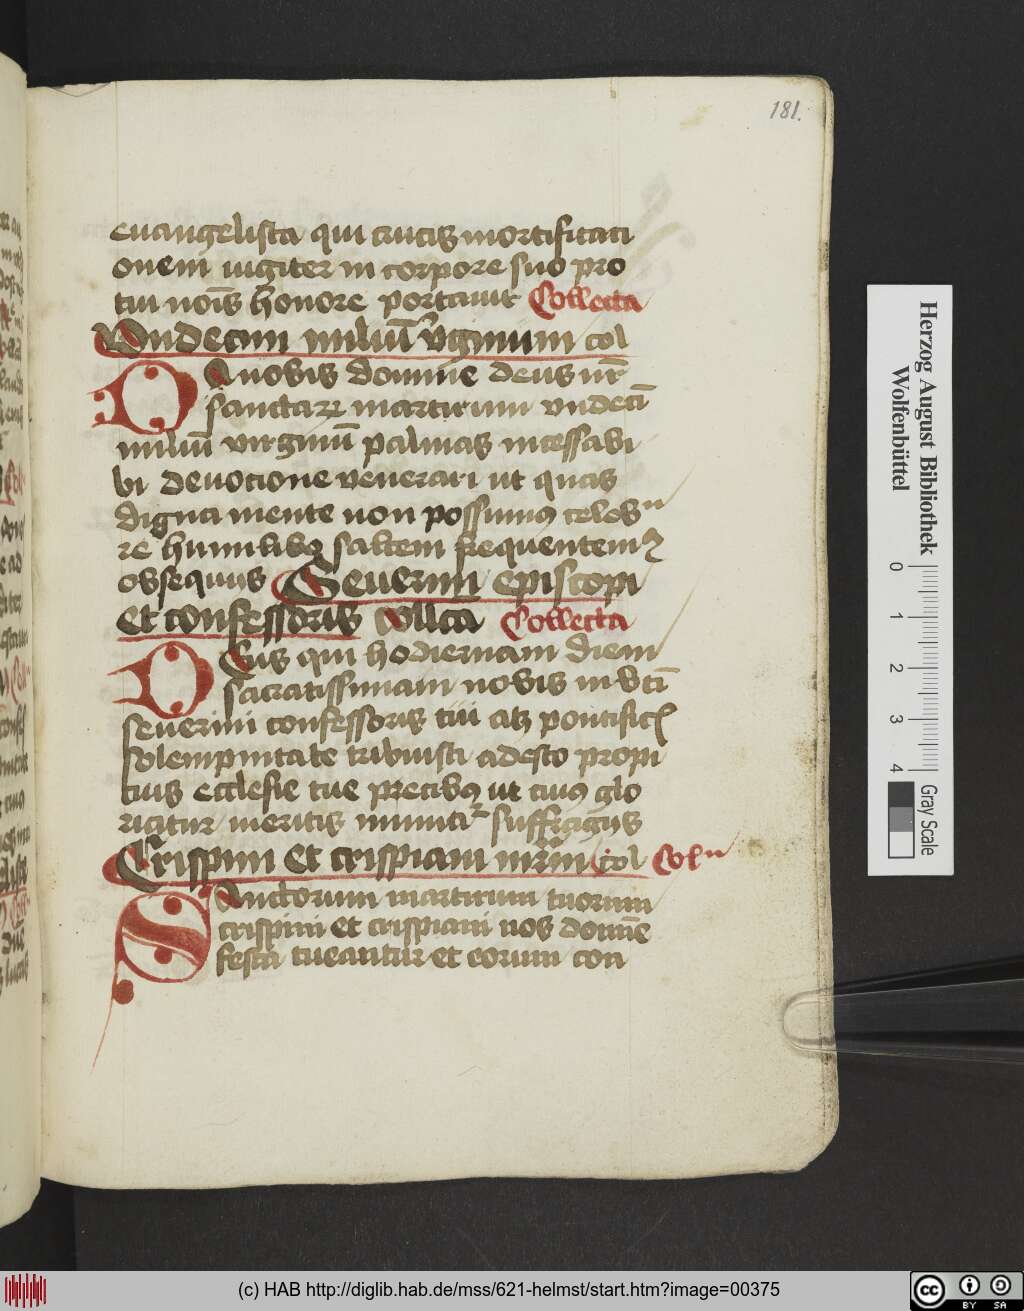 181.
euangelista qui crucis mortificati
onem iugiter in corpore suo pro
tui nois honore portauit Collecta
Vndecim miliu virginum col
Da nobis domine deus nr
sanctarum martirum vndeci
miliu virginiu palmas incessabi
bi deuotione venerari ut quas
digna mente non possimus celeb
re humilibus saltem frequentem
obsequiis Seuerini episcopi
et confessoris collca Collecta
Deus qui hodiernam diem
sacratissimam nobis in bti
seuerini confessoris tui atz pontific
solempnitate tribuisti adesto propi
tius ecclesie tue precibus ut cuius glo
riatur meritis muniat suffragiis
Crispini et crispiani mrm Col Col
Sanctorum martirum tuorum
crispini et crispiani nos domine
festa tueantur et eorum con
Herzog August Bibliothek
Wolfenbüttel
0 1 2 3 4
Gray Scale
(c) HAB http://diglib.hab.de/mss/621-helmst/start.htm?image=00375
cc BY SA